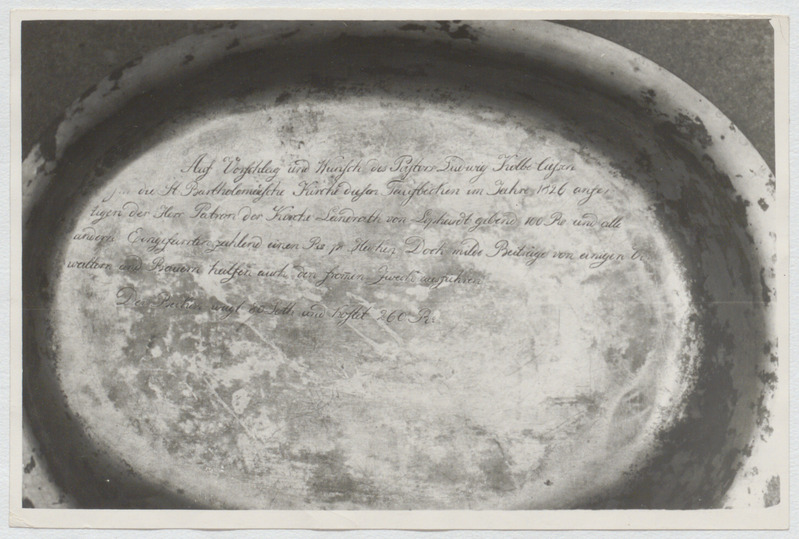 Auf Vorschlag und Wunsch des Pastors Ludwig Kolbe liessen
die St Bartholomäische Kirche diesen Taufbecken im Jahre 1826 anfer
tigen der Herr Patron der Kirche Landrath von Liphardt gebend 100 Ro und alle
andern Eingepfarrten zahlend einen Ro pr Hacken Doch milde Beiträge von einigen
waltern und Bauern halfen auch den fromen Zweck ausführen
Das Becken wiegt Loth und kostet 260 Ro